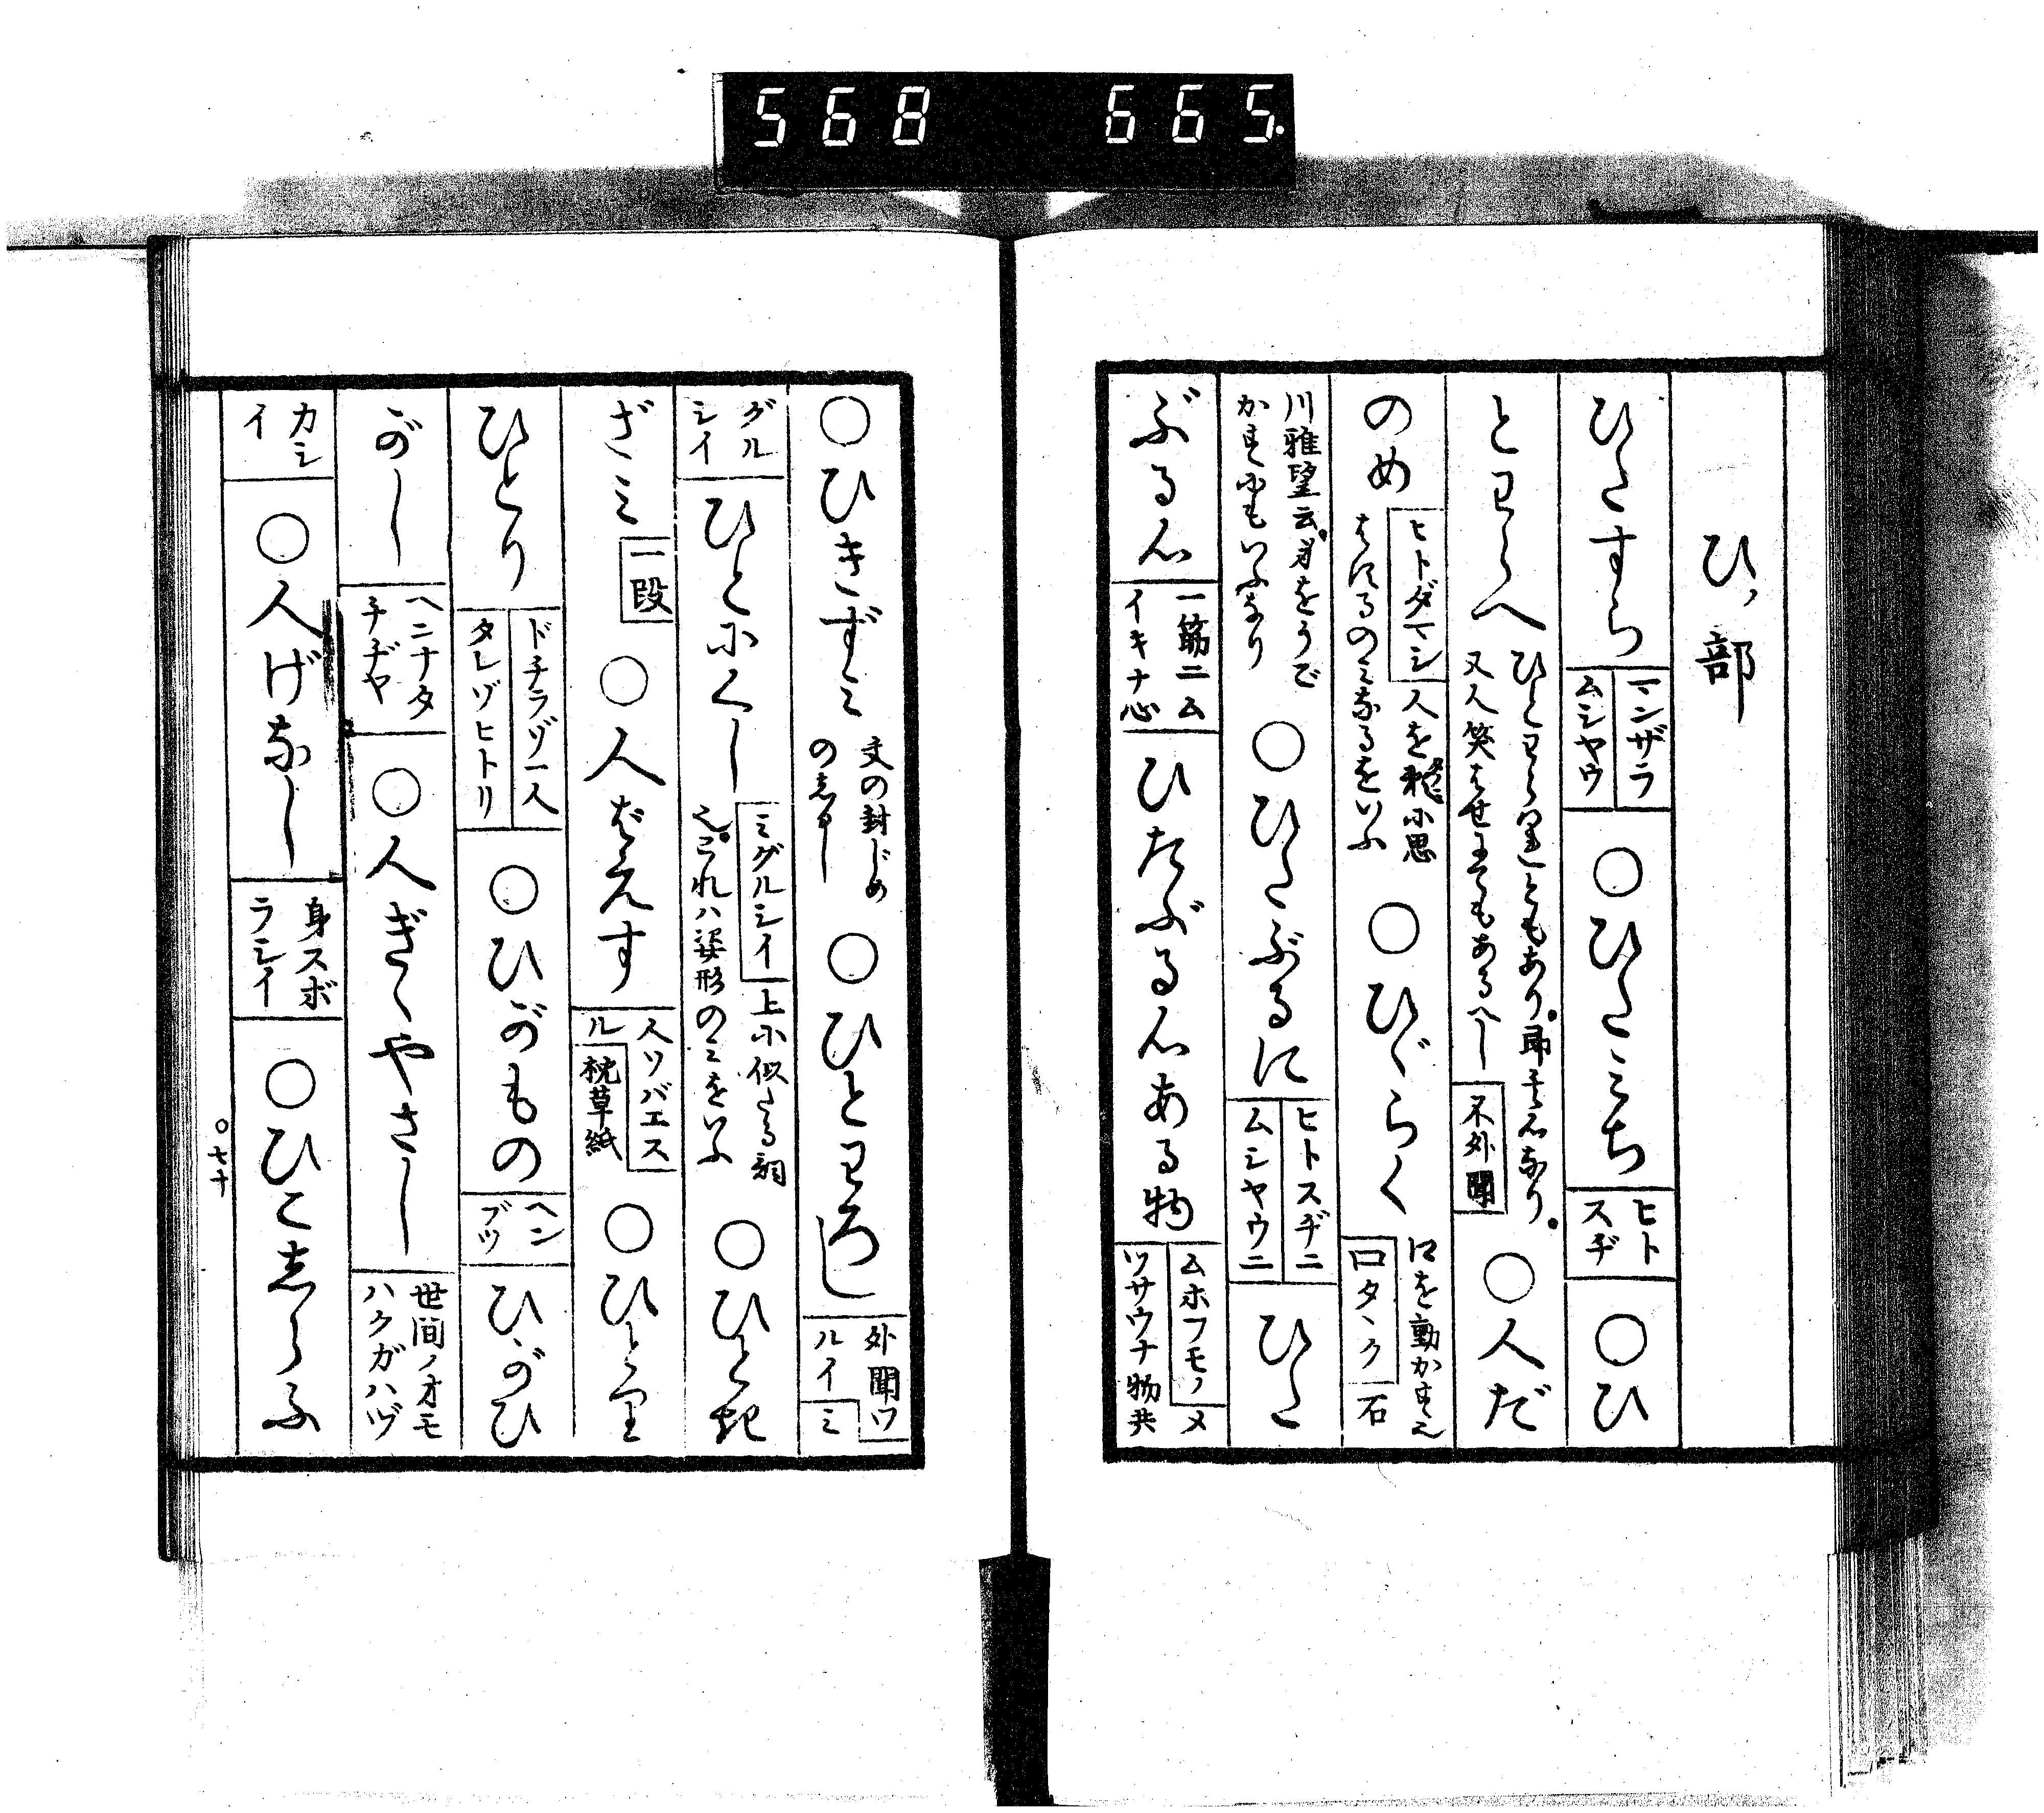 568 665
ひノ部
ひたすら マンザラ ムシヤウ ○ひたみち ヒトスヂ ○ひ
とわらへ ひとわらはれともあり。即其心なり。
又人笑はせにてもあるべし 不外聞 ○人だ
のめ ヒトダマシ 人を頼に思
はするのみなるをいふ ○ひゞらく 口を動かすを
口タヽク 石
川雅望云。身をうで
かすにもいふなり ○ひたぶるに ヒトスヂニ ムシヤウニ ひた
ぶる心 一筋ニム イキナ心 ひたぶる心ある物 ムホフモノ 又
ツサウナ物共
○ひきずミ 文の封じめ
の志るし ○ひとわろし 外聞ワ
ルイ ミ
グル
シイ ひとにくし ミグルシイ 上に似たる詞
也。これハ姿形のミをいふ ○ひとき
ざミ 一段 ○人ばえす 人ソバエス
ル 枕草紙 ○ひとり
ひとり ドチラゾ一人 タレゾヒトリ ○ひがもの ヘン
ブツ ひがひ
がし ヘニナタ
チヂヤ ○人ぎゝやさし 世間ノオモ
ハクガハヅ
カシ
イ ○人げなし 身スボ
ラシイ ○ひこしらふ
○七十